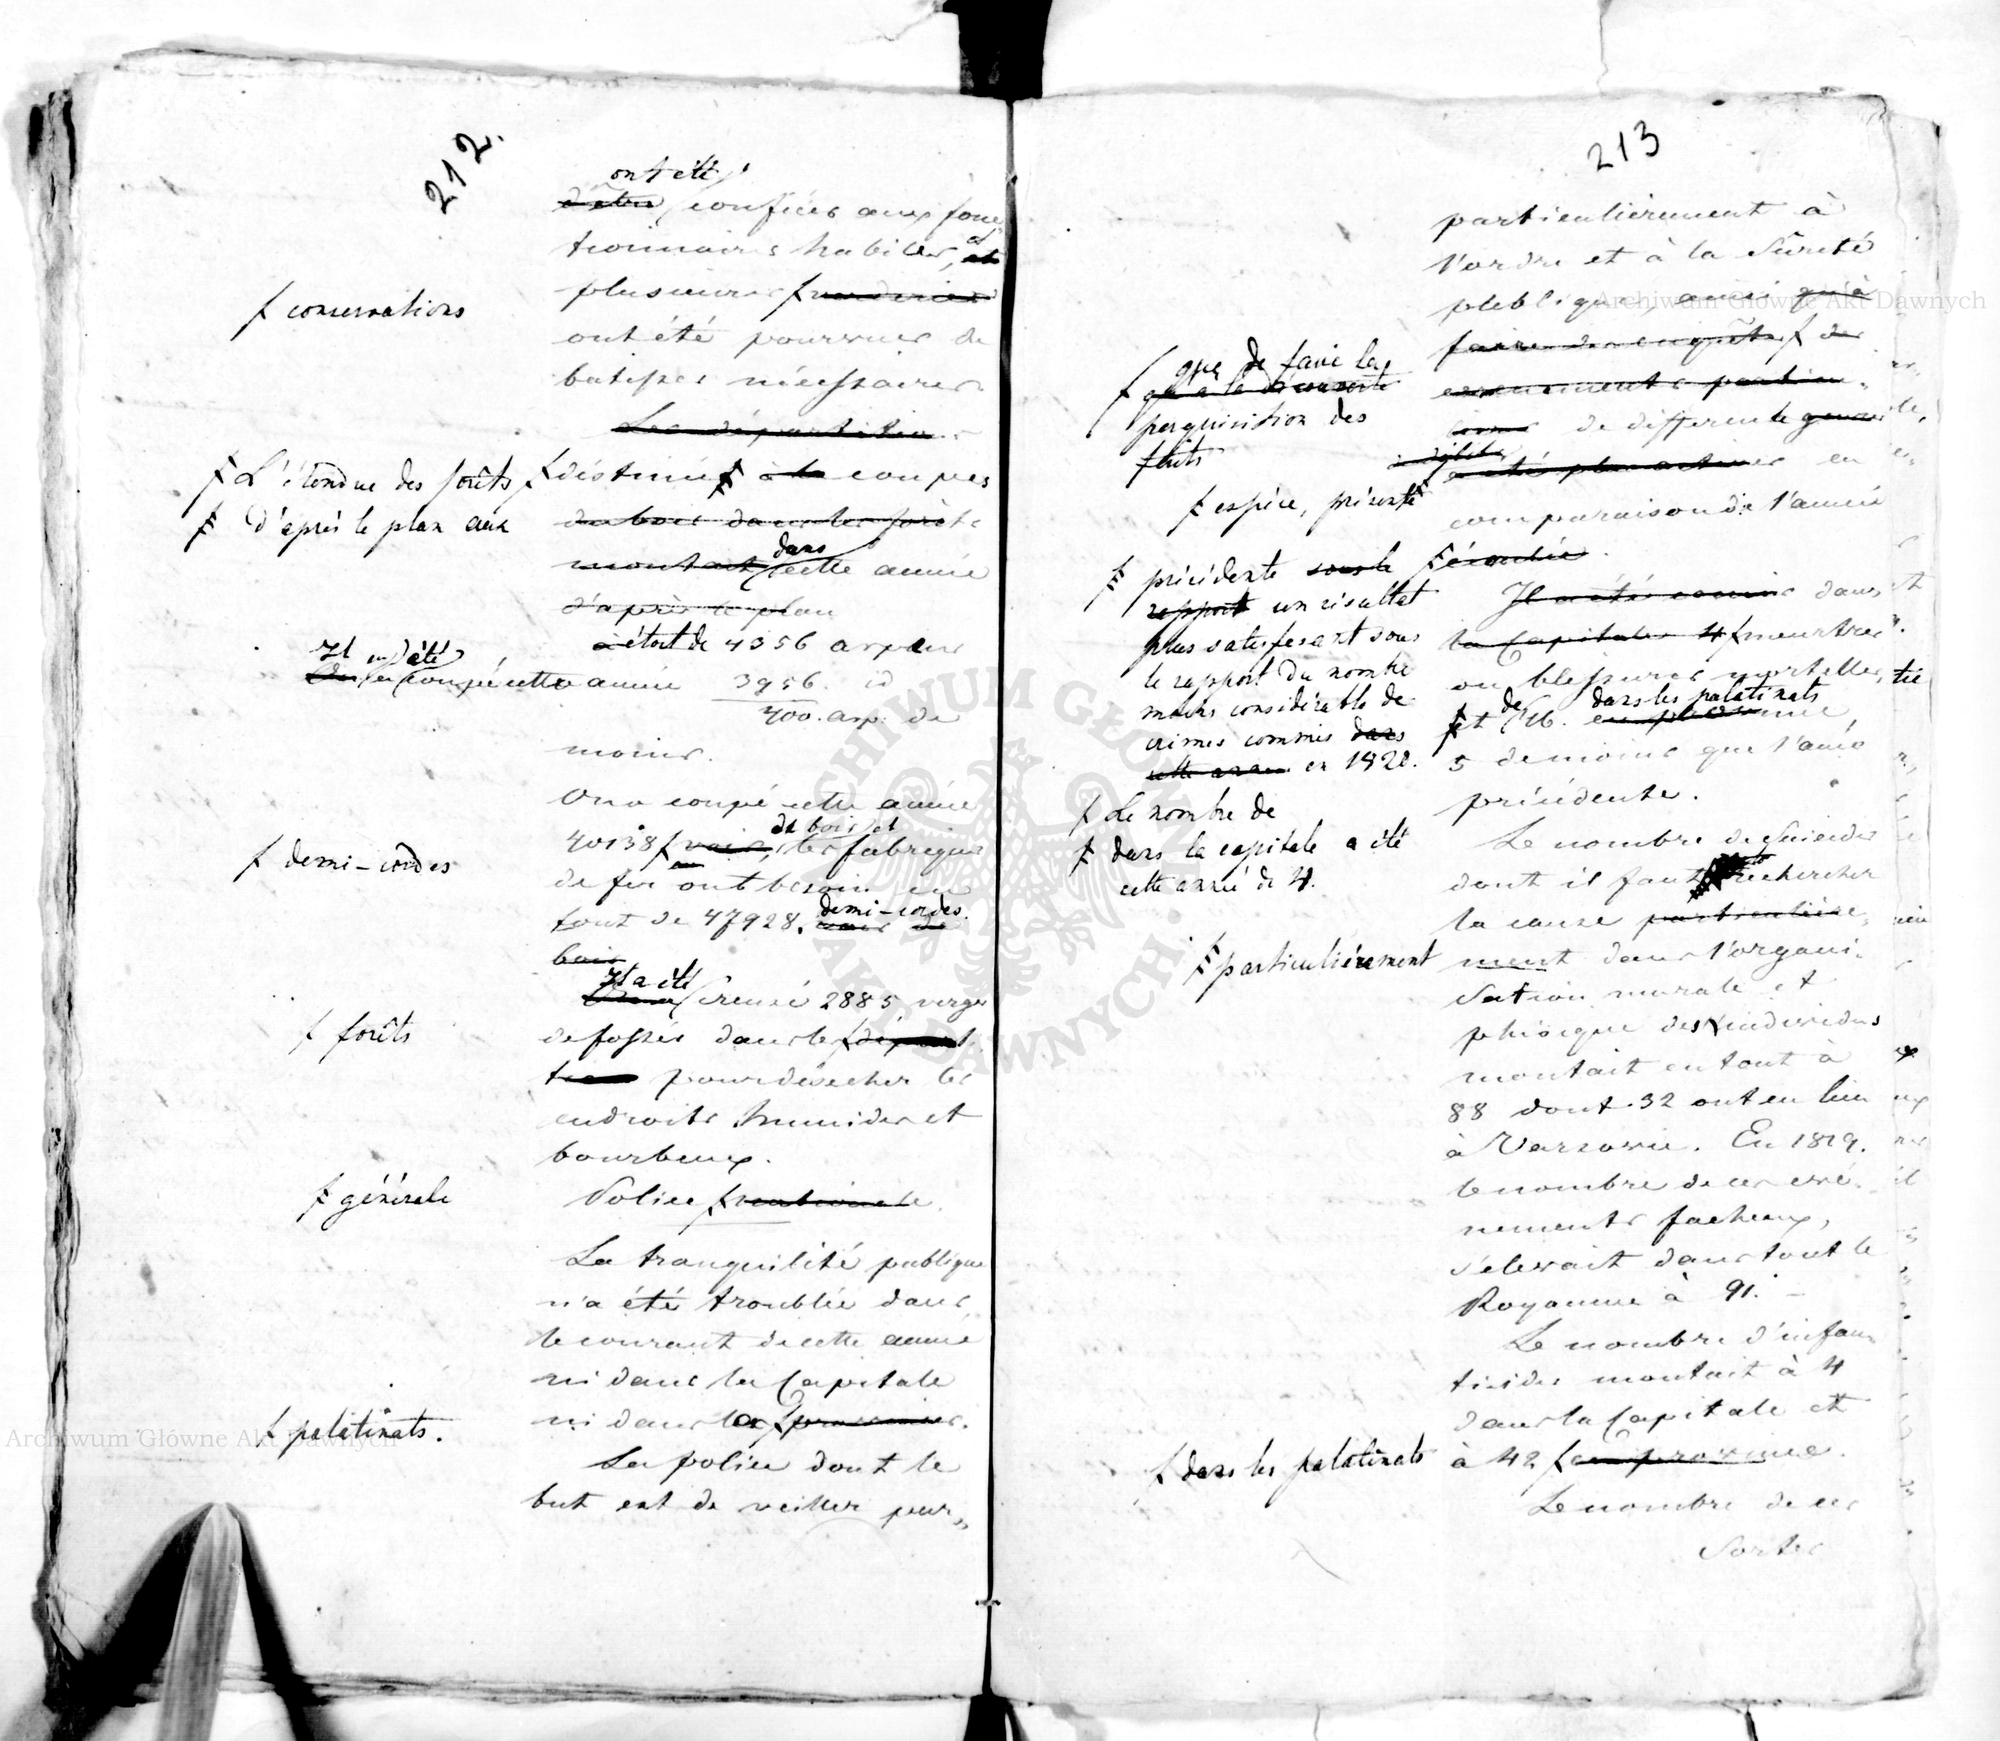 212.
ont été
d'être confiées aux fonc-
tionnaires habiles, et et
plusieurs ƒ
ƒ conservations
ont été pourvues de
batisses nécessaires
Les départitions
ƒ L'étendue des forêts ƒ destinée ƒ à la coupes
ƒ d'après le plan aux
du bois dans les forêts
montait dans cette année
d'après le plan
a était de 4356 arpens
Il en a été
On a coupé cette année 3956. id
400. arp. de
moins.
On a coupé cette année
de bois et
40138 ƒ les fabriques
ƒ demi-cordes
de fer ont besoin en
tout de 47928. demi-cordes.
de
bois
Il a été
creusé 2885 verges
ƒ forêts
de fossés dans les ƒ
pour désecher les
endroits humides et
bourbeux.
Police ƒ nationale.
ƒ générale
La tranquilité publique
n'a été troublée dans
le courant de cette année
ni dans la Capitale
ni dans les ƒ provinces.
ƒ palatinats.
La police dont le
but est de veiller par-
213
particuliérement à
l'ordre et à la Sûreté
publique, ainsi qu'à
faire des enquêtes ƒ des
ƒ que de faire la
qu'à la découverte
perquisition des
faits
de différente genres
a été plus active en
ƒ espèce, présente
comparaison de l'année
ƒ précédente sous le ƒ écoulée.
rapport un résultat
plus satisfesant sous
le rapport du nombre
moins considérable de
crimes commis dans
cette année en 1820.
Il a été commis dans
la Capitale 4 ƒ meurtres
ou blessures mortelles,
de dans les palatinats
ƒ et 46. en province,
5 de moins que l'année
précédente.
ƒ Le nombre de
ƒ dans la capitale a été
cette année de 4.
Le nombre de Suicides
dont il faut rechercher
la cause particulière-
ƒ particuliérement
ment dans l'organi-
sation morale et
phisique des individus
montait en tout à
88 dont 32 ont eu lieu
à Varsovie. En 1819.
le nombre de ces evé-
nements facheux,
s'elevait dans tout le
Royaume à 91. -
Le nombre d'infan-
ticides montait à 4
dans la Capitale et
ƒ dans les palatinats à 42 ƒ en province.
Le nombre de ces
Sortes